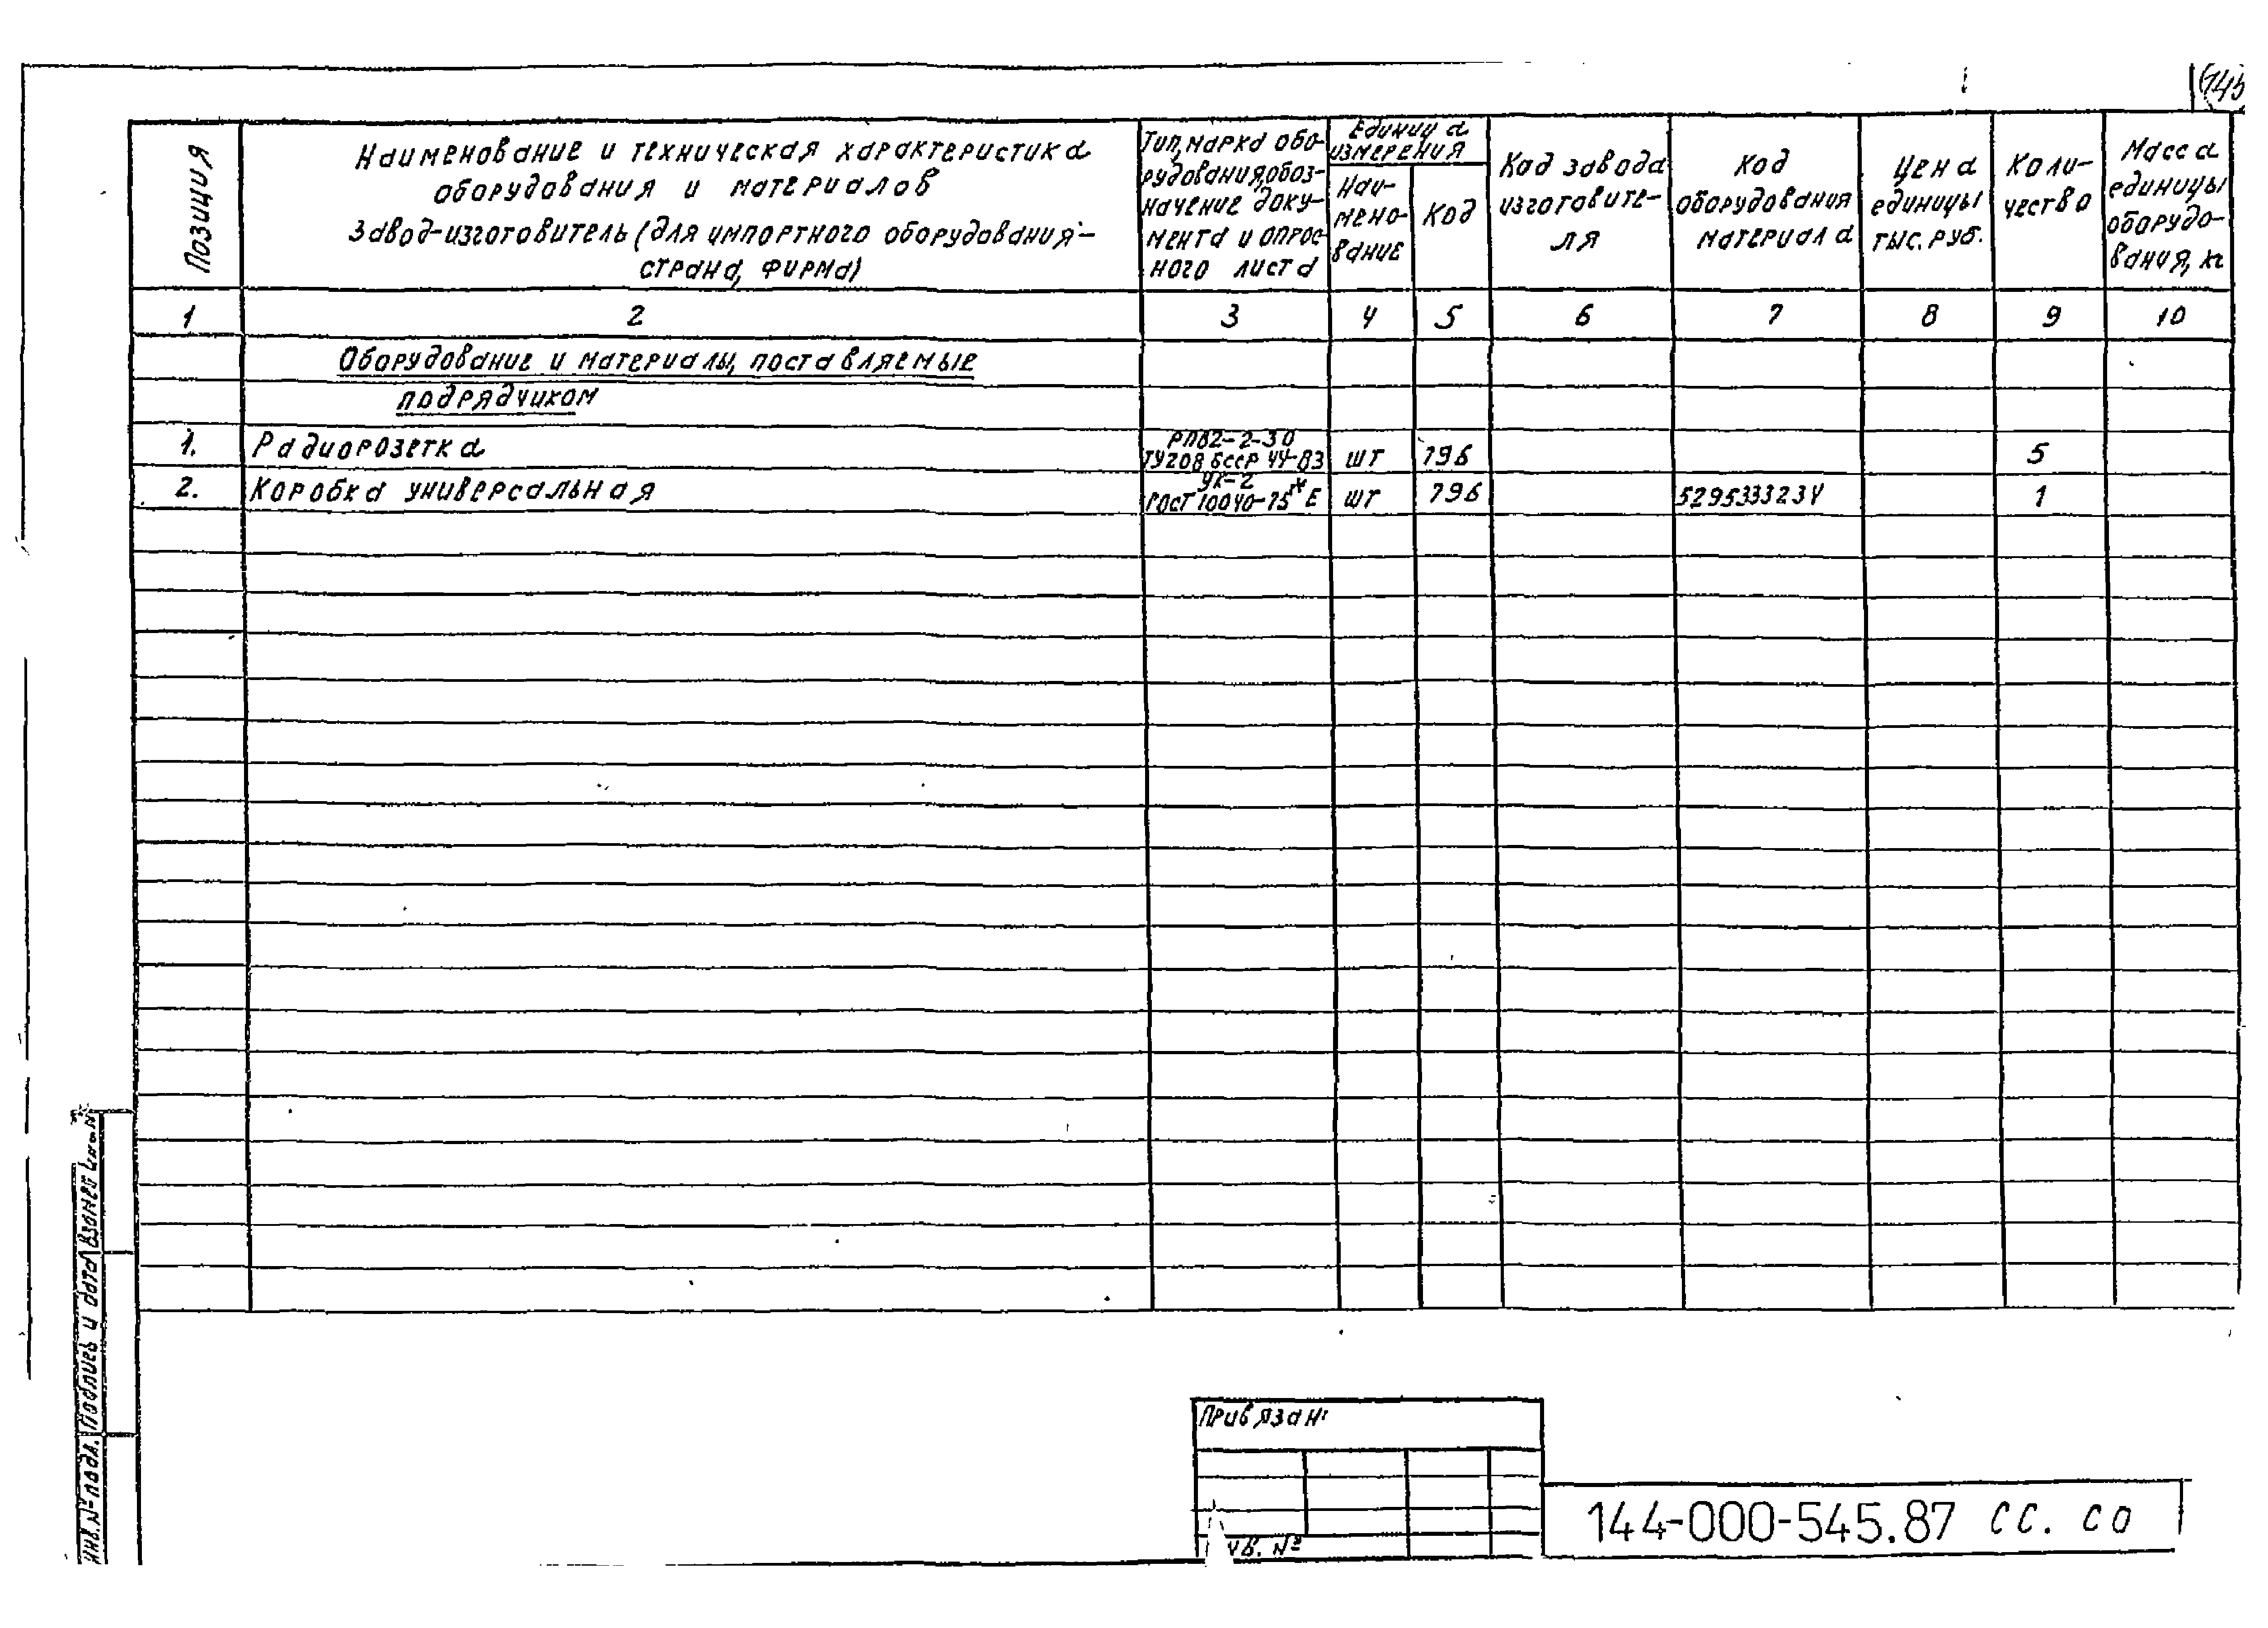 Позиция
Наименование и техническая характеристика
оборудования и материалов
Завод-изготовитель (для импортного оборудования-
страна, фирма)
Тип, марка обо-
рудования, обоз-
начение доку-
мента и опрос
ного листа
Единица
измерения
Наи-
мено-
вание
Код
Код завода
изготовите-
ля
Код
оборудования
материала
Цена
единицы
тыс. руб.
Коли-
чество
Масса
единицы
оборудо-
вания, кг
1 2 3 4 5 6 7 8 9 10
Оборудование и материалы, поставляемые
подрядчиком
1. Радиорозетка РПВ2-2-30 ТУ208 БССР 44-83 шт 796 5
2. Коробка универсальная УК-2 ГОСТ 10040-75* Е шт 796 5295333234 1
Взамен инв. №
Подпись и дата
Инв. № подл.
Привязан:
Инв. №
144-000-545.87 СС. СО